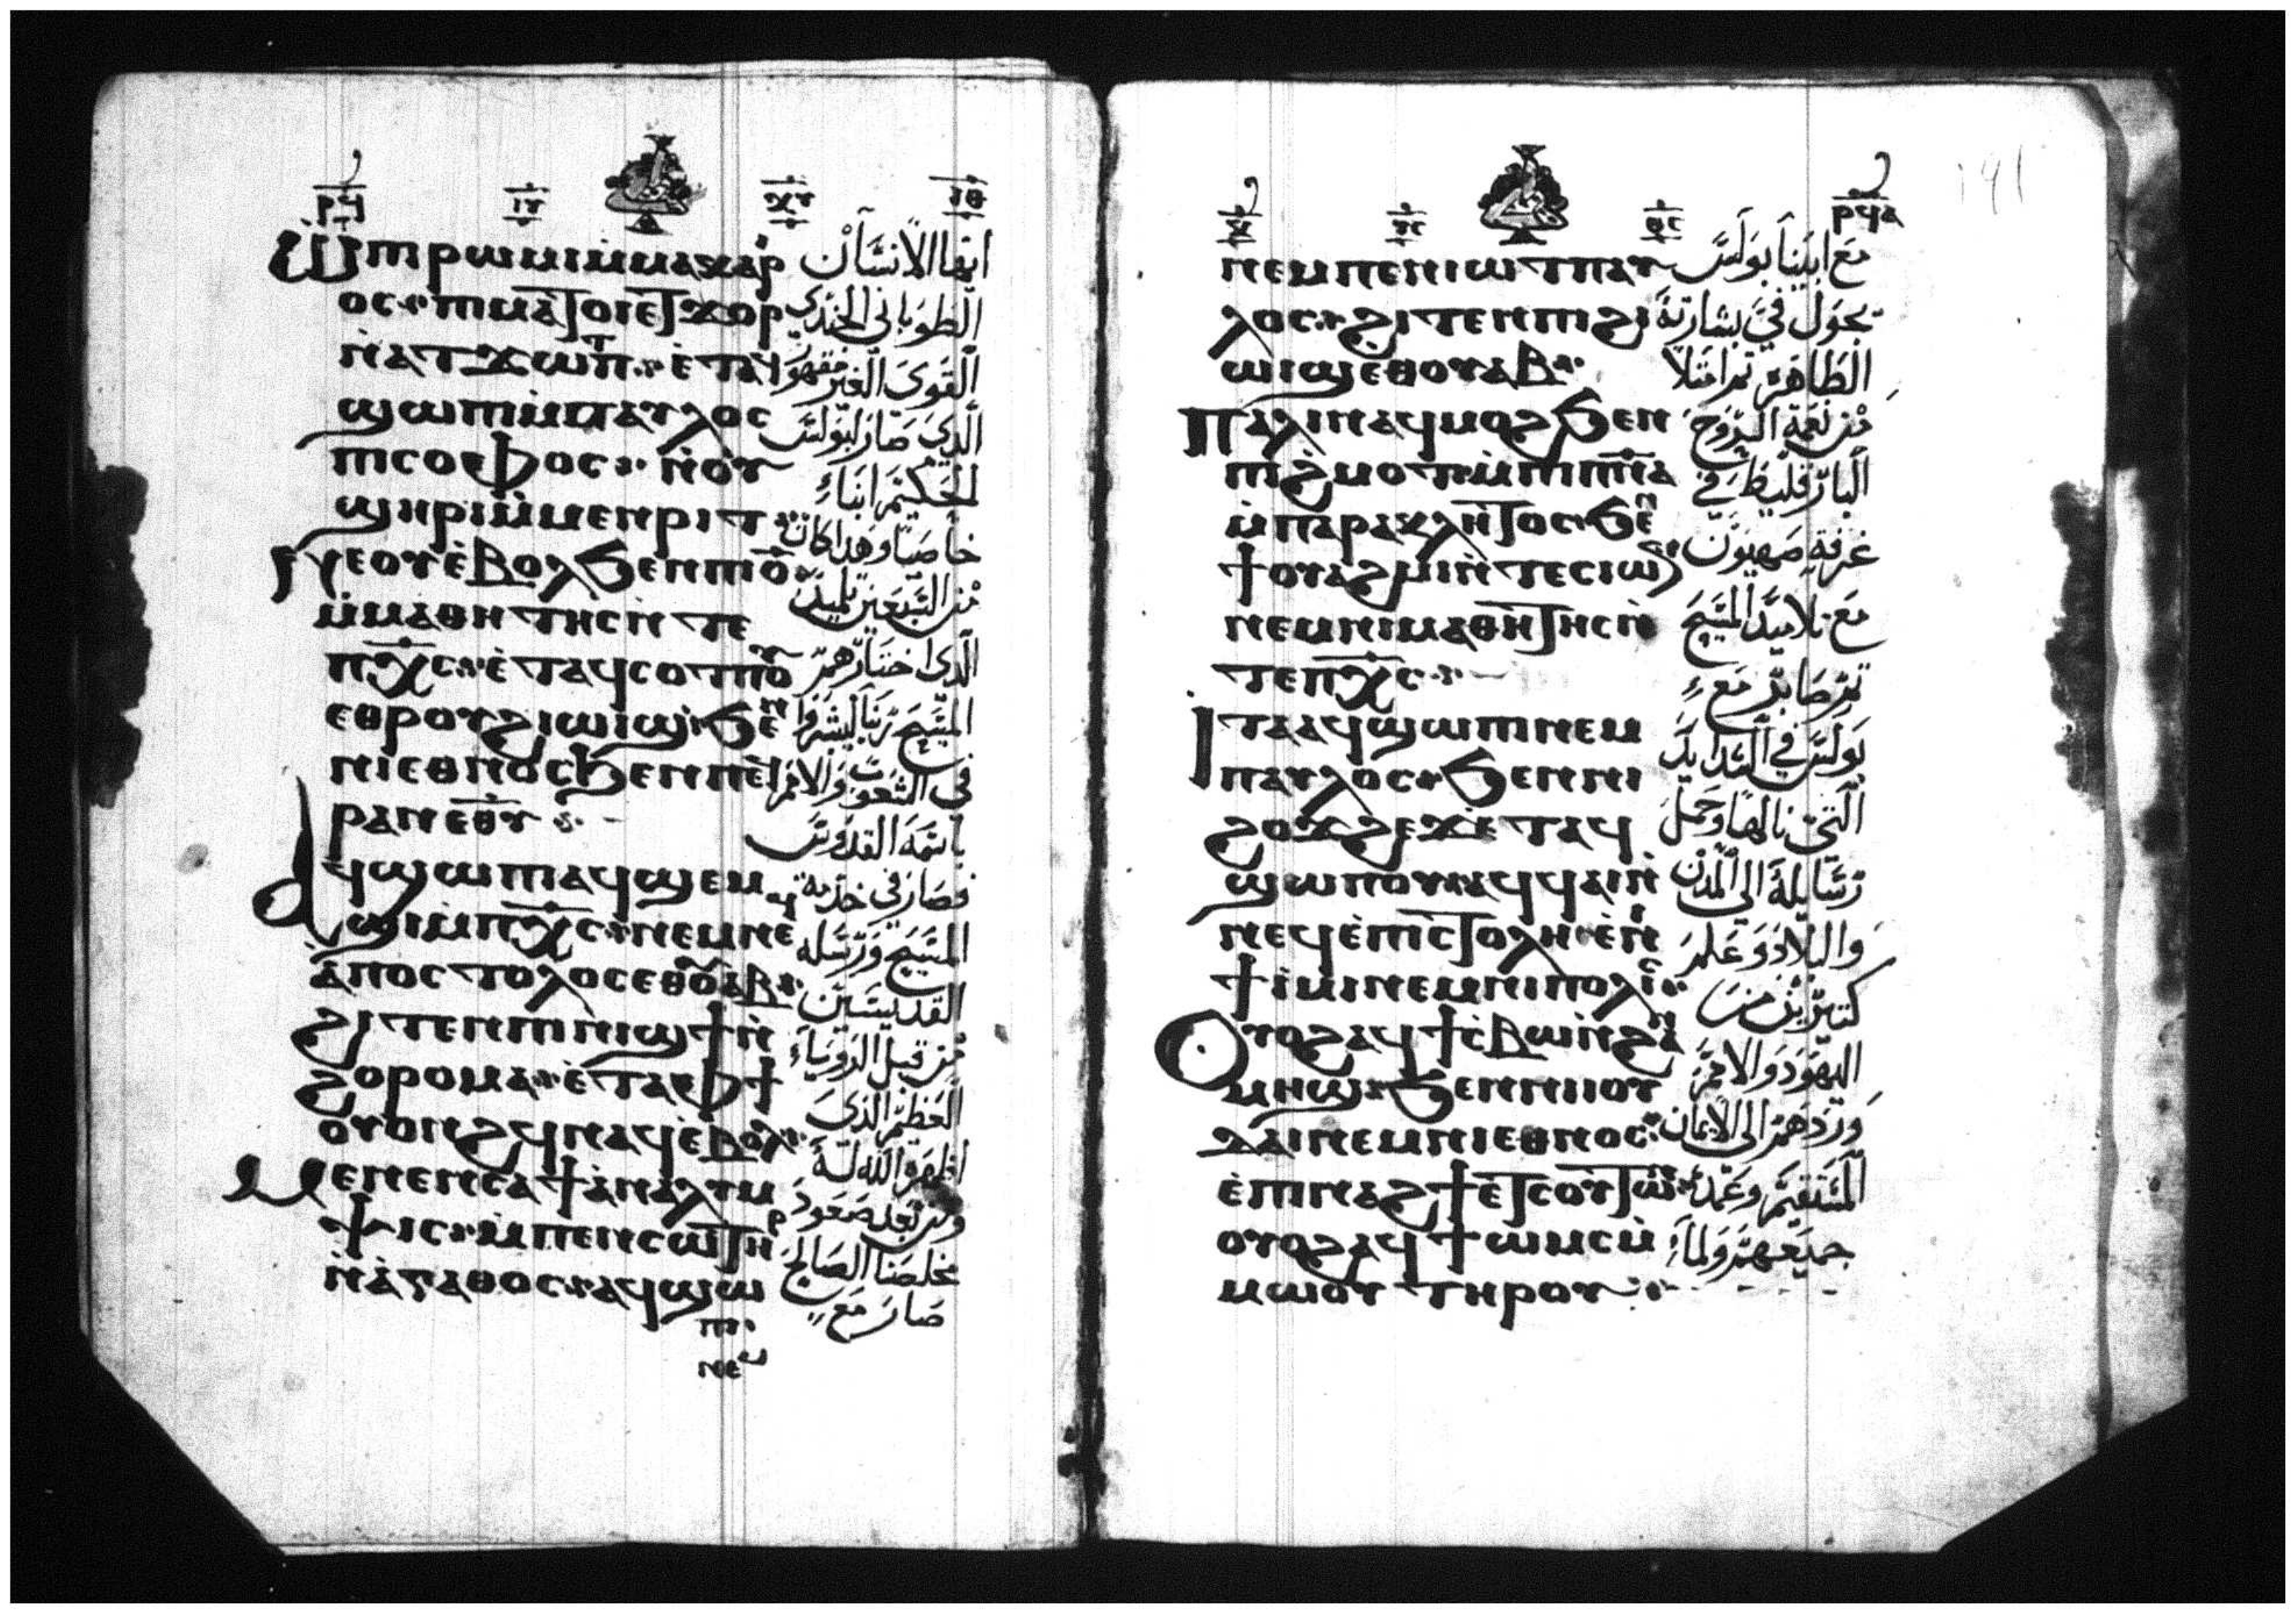 ⲣϥ
Ⲱ ⲡⲓⲣⲱⲙⲓ ⲙ̀ⲙⲁⲕⲁⲣⲓ
ⲟⲥ ⲡⲓⲙⲁⲧⲟⲓ ⲉⲧϫⲟⲣ
ⲛ̀ⲁⲧϫⲱⲡ ⲉ̀ⲧⲁϥ
ϣⲱⲡⲓ ⲙ̀ⲡⲁⲩⲗⲟⲥ
ⲡⲓⲥⲟⲫⲟⲥ ⲛ̀ⲟⲩ
ϣⲏⲣⲓ ⲙ̀ⲙⲉⲛⲣⲓⲧ
ⲉⲟⲩⲉ̀ⲃⲟⲗ ϧⲉⲛ ⲡⲓⲟ̅
ⲙ̀ⲙⲁⲑⲏⲧⲏⲥ ⲛ̀ⲧⲉ
ⲡⲭ̅ⲥ ⲉ̀ⲧⲁϥⲥⲟⲧⲡⲟⲩ
ⲉⲑⲣⲟⲩϩⲓⲱⲓϣ ϧⲉⲛ
ⲛⲓⲉⲑⲛⲟⲥ ϧⲉⲛ ⲡⲉϥ
ⲣⲁⲛ ⲉⲑⲩ
Ⲁϥϣⲱⲡⲓ ⲁϥϣⲉⲙ
ϣⲓ ⲙ̀ⲡⲭ̅ⲥ ⲛⲉⲙ ⲛⲉϥ
ⲁ̀ⲡⲟⲥⲧⲟⲗⲟⲥ ⲉⲑⲟⲩⲁⲃ
ϩⲓⲧⲉⲛ ⲡⲓⲛⲓϣϯ ⲛ̀
ϩⲟⲣⲟⲙⲁ ⲉ̀ⲧⲁ ⲫϯ
ⲟⲩⲟⲛϩϥ ⲛⲁϥ ⲉ̀ⲃⲟⲗ
Ⲙⲉⲛⲉⲛⲥⲁ ϯⲁⲛⲁⲗⲩⲙ
ⲯⲓⲥ ⲙ̀ⲡⲉⲛⲥⲱⲧⲏⲣ
ⲛ̀ⲁⲅⲁⲑⲟⲥ ⲁϥϣⲱ
ⲡⲓ
ⲛⲉⲙ
ايها الانسان
الطوباني الجندي
القوى الغير مقهور
الذي صار لبولس
الحكيم ابناء
خاصتا وهدا كان
من السبعين تلميد
الدى اختارهم
المسيح ربنا ليبشروا
في الشعوب والامم
باسمه القدوس
فصار في خدمة
المسيح ورسله
القديسين
من قبل الرويا
العظيم الذى
اظهره الله له
ومن بعد صعود
مخلصنا الصالح
صار مع
ⲣϥⲁ
191
ⲛⲉⲙ ⲡⲉⲛⲓⲱⲧ ⲡⲁⲩ
ⲗⲟⲥ ϩⲓⲧⲉⲛ ⲡⲓϩⲓ
ⲱⲓϣ ⲉⲑⲟⲩⲁⲃ
Ⲡⲁⲗⲓⲛ ⲁϥⲙⲟϩ ϧⲉⲛ
ⲡⲓϩ̀ⲙⲟⲧ ⲙ̀ⲡⲓⲡ̅ⲛ̅ⲁ
ⲙ̀ⲡⲁⲣⲁⲕⲗⲏⲧⲟⲥ ϧⲉⲛ
ϯⲟⲩⲁϩⲙⲓ ⲛ̀ⲧⲉ ⲥⲓⲱⲛ
ⲛⲉⲙ ⲛⲓⲙⲁⲑⲏⲧⲏⲥ ⲛ̀
ⲧⲉ ⲡⲭ̅ⲥ
Ⲓⲧⲁ ⲁϥϣⲱⲡⲓ ⲛⲉⲙ
ⲡⲁⲩⲗⲟⲥ ϧⲉⲛ ⲛⲓ
ϩⲟϫϩⲉϫ ⲉ̀ⲧⲁϥ
ϣⲱⲡⲟⲩ ⲁϥϥⲁⲓ ⲛ̀
ⲛⲉϥⲉ̀ⲡⲓⲥⲧⲟⲗⲏ ⲉ̀ⲛⲓ
ϯⲙⲓ ⲛⲉⲙ ⲛⲓⲡⲟⲗⲓⲥ
Ⲟⲩⲟϩ ⲁϥϯⲥⲃⲱ ⲛ̀ϩⲁⲛ
ⲙⲏϣ ϧⲉⲛ ⲛⲓⲓⲟⲩ
ⲇⲁⲓ ⲛⲉⲙ ⲛⲓⲉⲑⲛⲟⲥ
ⲉ̀ⲡⲓⲛⲁϩϯ ⲉⲧⲥⲟⲩⲧⲱⲛ
ⲟⲩⲟϩ ⲁϥϯⲱⲙⲥ ⲙ̀
ⲙⲱⲟⲩ ⲧⲏⲣⲟⲩ
مع ابينا بولس
يجول في بشارته
الطاهرة ثم امتلا
من نعمة الروح
البارقليط في
غرفة صهيون
مع تلاميد المسيح
ثم صابر مع
بولس في الشدايد
التى نالها وحمل
رسايله الى المدن
والبلاد وعلم
كتيرين من
اليهود والامم
وردهم الى الايمان
المستقيم وعمد
جميعهم ولما